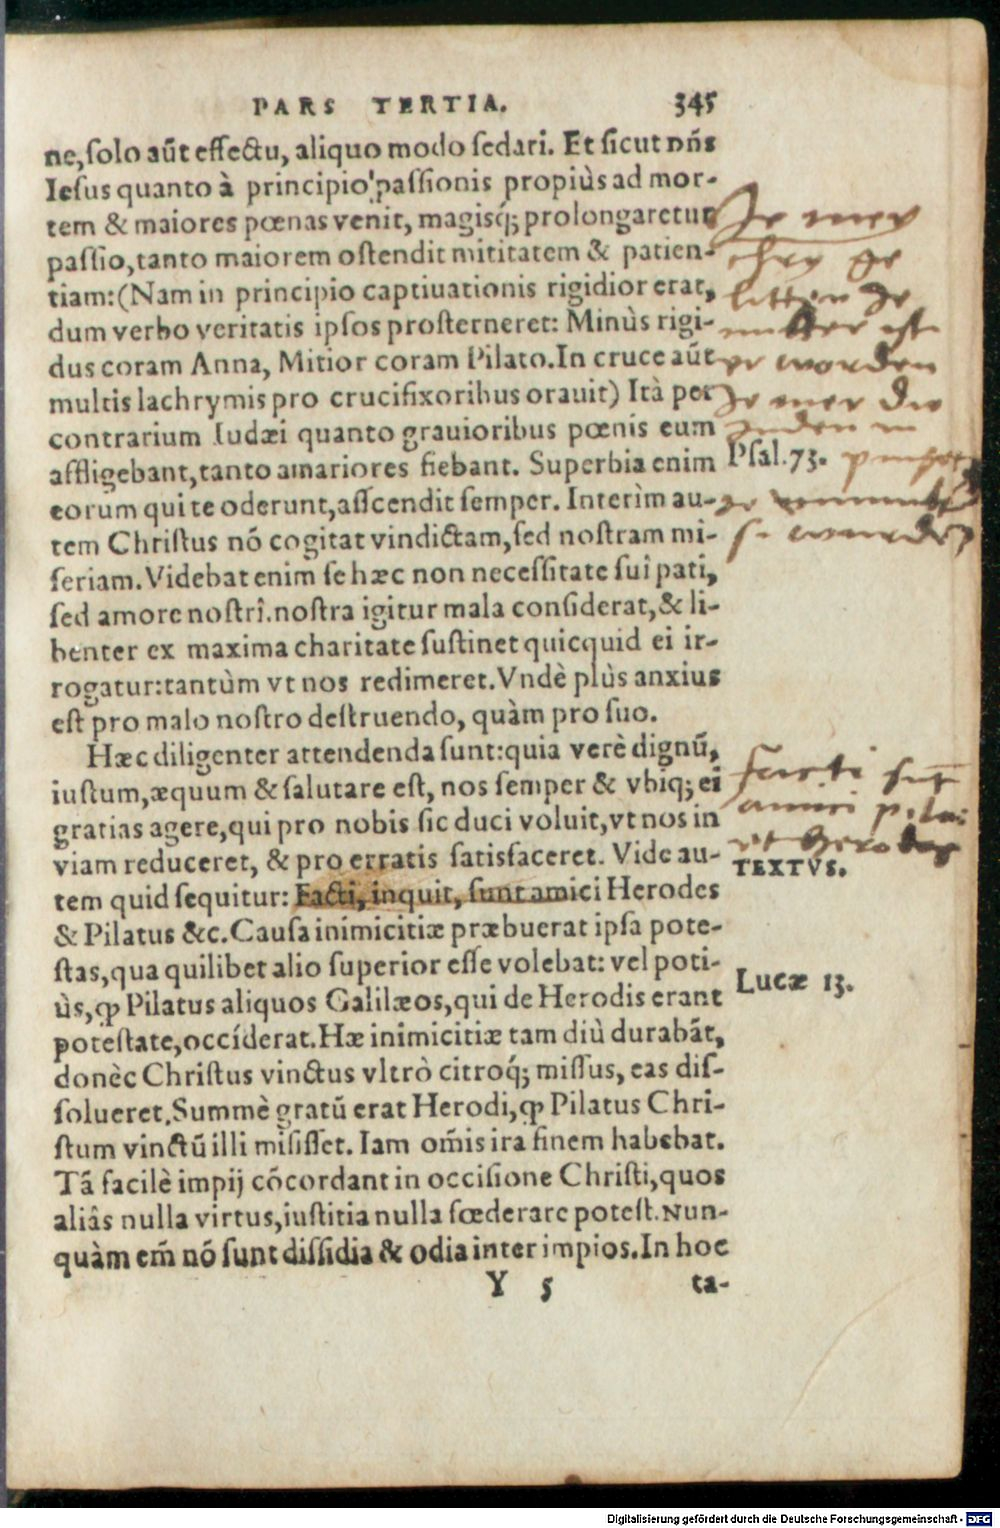 PARS TERTIA. 345
ne, solo aūt effectu, aliquo modo sedari. Et sicut dñs
Iesus quanto à principio passionis propiùs ad mor-
tem & maiores pœnas venit, magisq́; prolongaretur
passio, tanto maiorem ostendit mititatem & patien-
tiam: (Nam in principio captiuationis rigidior erat,
dum verbo veritatis ipsos prosterneret: Minùs rigi-
dus coram Anna, Mitior coram Pilato. In cruce aūt
multis lachrymis pro crucifixoribus orauit) Ità per
contrarium Iudæi quanto grauioribus pœnis eum
affligebant, tanto amariores fiebant. Superbia enim
eorum qui te oderunt, asscendit semper. Interìm au-
tem Christus nō cogitat vindictam, sed nostram mi-
seriam. Videbat enim se hæc non necessitate sui pati,
sed amore nostrî. nostra igitur mala considerat, & li-
benter ex maxima charitate sustinet quicquid ei ir-
rogatur: tantùm vt nos redimeret. Vndè plùs anxius
est pro malo nostro destruendo, quàm pro suo.
Hæc diligenter attendenda sunt: quia verè dignū,
iustum, æquum & salutare est, nos semper & vbiq; ei
gratias agere, qui pro nobis sic duci voluit, vt nos in
viam reduceret, & pro erratis satisfaceret. Vide au-
tem quid sequitur: Facti, inquit, sunt amici Herodes
& Pilatus &c. Causa inimicitiæ præbuerat ipsa pote-
stas, qua quilibet alio superior esse volebat: vel poti-
ùs, ꝙ Pilatus aliquos Galilæos, qui de Herodis erant
potestate, occíderat. Hæ inimicitiæ tam diù durabāt,
donèc Christus vinctus vltrò citroq́; missus, eas dis-
solueret. Summè gratū erat Herodi, ꝙ Pilatus Chri-
stum vinctū illi misisset. Iam om̄is ira finem habebat.
Tā facilè impij cōcordant in occisione Christi, quos
aliâs nulla virtus, iustitia nulla fœderare potest. Nun-
quàm em̄ nō sunt dissidia & odia inter impios. In hoc
Y 5 ta-
Je mer
litten Je
er worden
Je mer die
Juden
Psal. 73.
facti sūt
amici pila
et herodes
TEXTVS.
Lucæ 13.
Digitalisierung gefördert durch die Deutsche Forschungsgemeinschaft - DFG